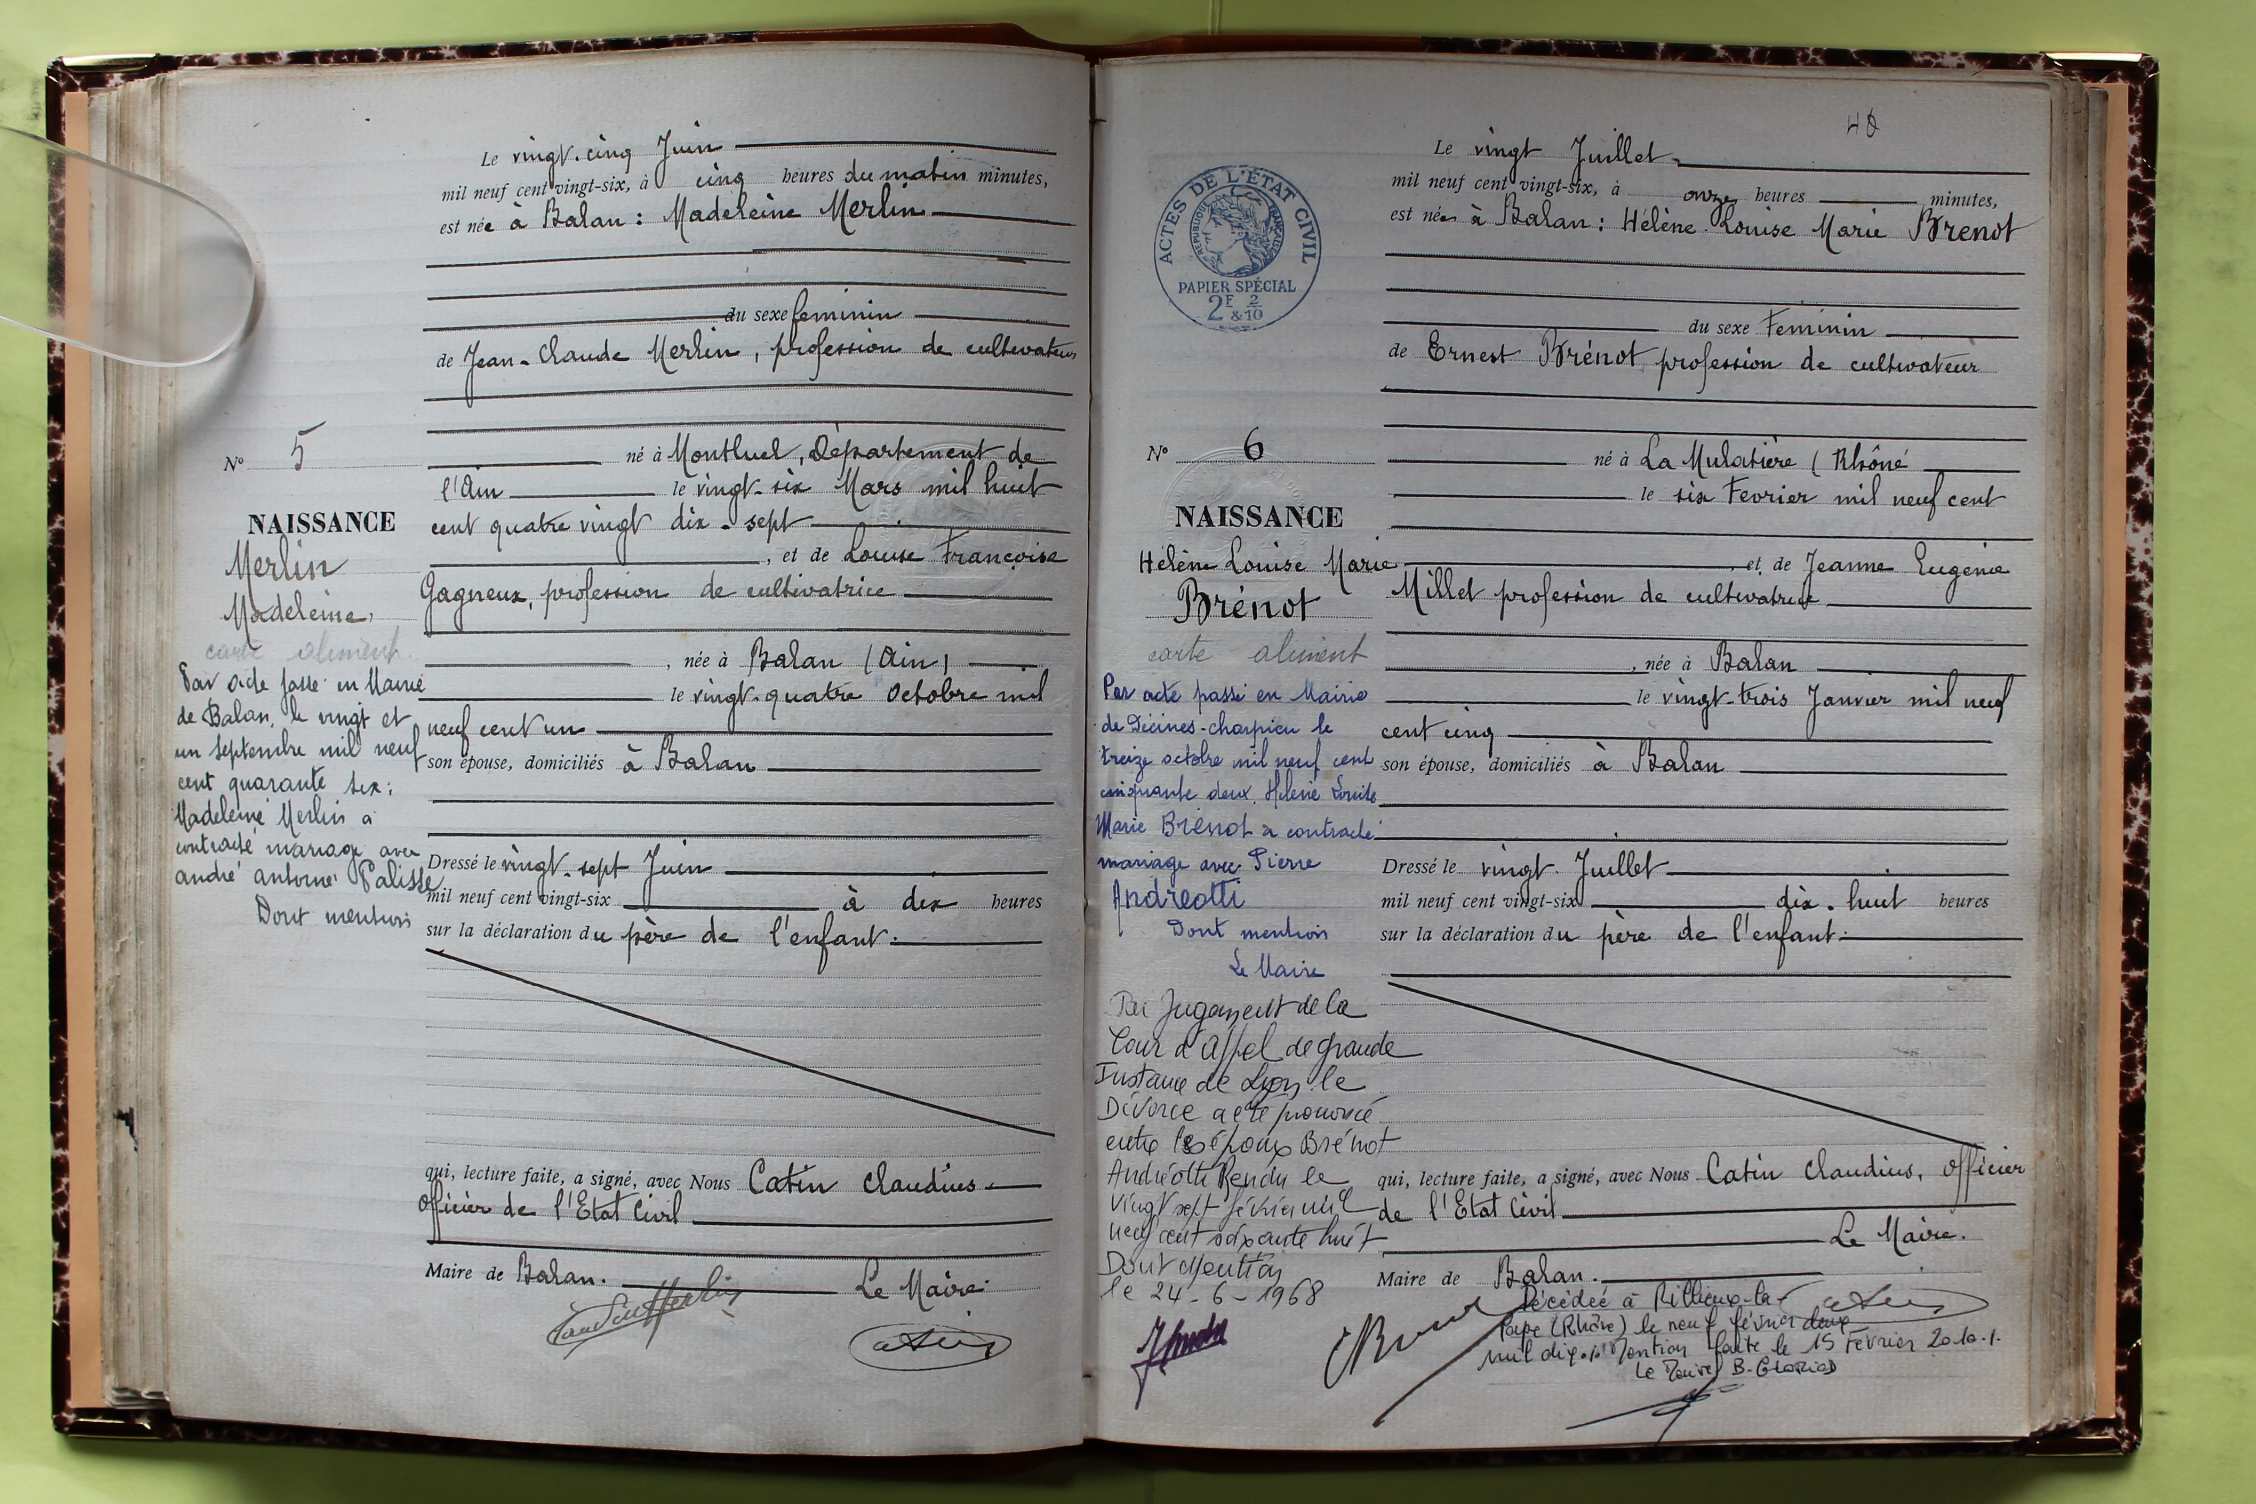 Le vingt-cinq Juin
mil neuf cent vingt-six, à cinq heures du matin minutes,
est née à Balan : Madeleine Merlin
du sexe feminin
de Jean-Claude Merlin, profession de cultivateur
né à Montluel, Département de
l'Ain le vingt-six Mars mil huit
cent quatre vingt dix-sept
, et de Louise Françoise
Gagneux, profession de cultivatrice
, née à Balan (Ain)
le vingt-quatre Octobre mil
neuf cent un
son épouse, domiciliés à Balan
Dressé le vingt-sept Juin
mil neuf cent vingt-six à dix heures
sur la déclaration du père de l'enfant.
qui, lecture faite, a signé, avec Nous Catin Claudius
officier de l'Etat Civil
Maire de Balan.
Le Maire.
N° 5
NAISSANCE
Merlin
Madeleine
carte aliment.
Par acte passé en Mairie
de Balan, le vingt et
un septembre mil neuf
cent quarante six;
Madeleine Merlin a
contracté mariage avec
andré antoine Palisse
Dont mention
40
Le vingt Juillet
mil neuf cent vingt-six, à onze heures minutes,
est née à Balan : Hélène Louise Marie Brenot
du sexe Feminin
de Ernest Brénot, profession de cultivateur
né à La Mulatière (Rhône
le six Fevrier mil neuf cent
, et de Jeanne Eugénie
Millet profession de cultivatrice
, née à Balan
le vingt-trois Janvier mil neuf
cent cinq
son épouse, domiciliés à Balan
Dressé le vingt Juillet
mil neuf cent vingt-six dix-huit heures
sur la déclaration du père de l'enfant.
qui, lecture faite, a signé, avec Nous Catin Claudius, officier
de l'Etat Civil
Le Maire.
Maire de Balan.
ACTES DE L'ÉTAT CIVIL
RÉPUBLIQUE FRANÇAISE
PAPIER SPÉCIAL
2F & 2/10
N° 6
NAISSANCE
Hélène Louise Marie
Brénot
carte aliment
Par acte passé en Mairie
de Décines-charpieu le
treize octobre mil neuf cent
cinquante deux, Hélène Louise
Marie Brénot a contracté
mariage avec Pierre
Andreotti
Dont mention
Le Maire
Par Jugement de la
Cour d'Appel de grande
Instance de Lyon le
Divorce a été prononcé
entre les époux Brénot
Andréotti Rendu le
vingt sept février mil
neuf cent soixante huit
Dont Mention
le 24-6-1968
Décédée à Rillieux-la-
Pape (Rhône) le neuf février deux
mil dix. Mention faite le 15 Février 2010.
Le Maire